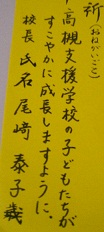 祈
(おねがいごと)
高槻支援学校の子どもたちが
すこやかに成長しますように。
校長 氏名 尾﨑 泰子 歳